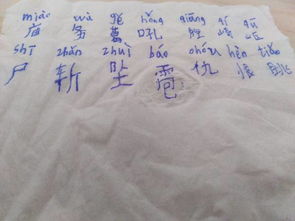 miáo wù gě hǒng qiāng qí qū
庙 务 葛 吼 腔 崎 岖
shī zhǎn zhuì báo chóu hèn tiǎo
尸 斩 坠 雹 仇 恨 眺